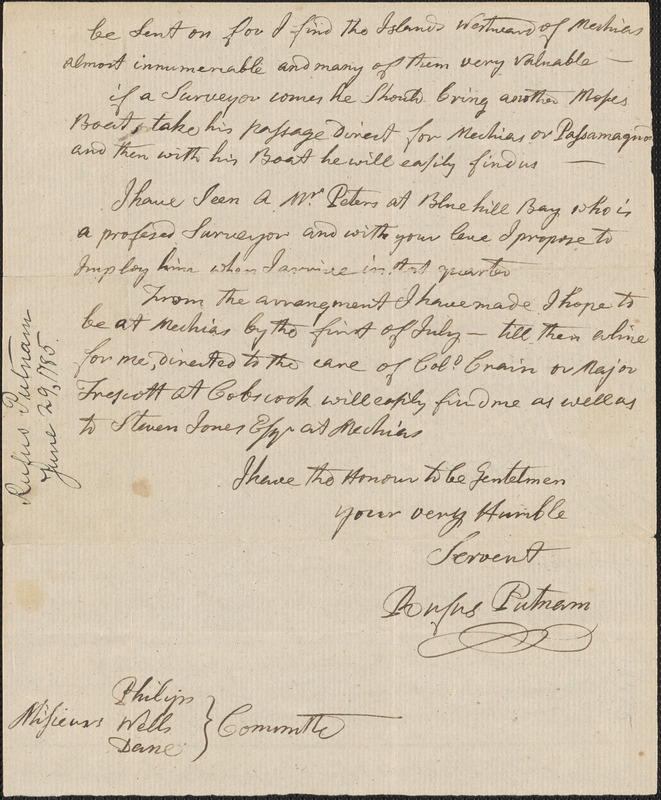 be Sent on for I find the Islands Westward of Mechias
almost innumeriable and many of them very valuable —
if a Surveyor comes he Should bring another Moses
Boat, take his passage Direct for Mechias or Passamaquo
and then with his Boat he will easily find us —
I have Seen a Mr Peters at Blue hill Bay who is
a profesed Surveyor and with your leve I propose to
Imploy him when I arrive in that quarter
From the arrangment I have made I hope to
be at Mechias by the first of July — till then a line
for me, directed to the care of Colo Crain or Major
Trescott at Cobscook will easily find me as well as
to Steven Jones Esqr at Mechias
I have the Honour to be Gentelmen
your very Humble
Servent
Rufus Putnam
Misieurs Philips
Wells
Dane
} Committe
Rufus Putnam
June 29, 1785.